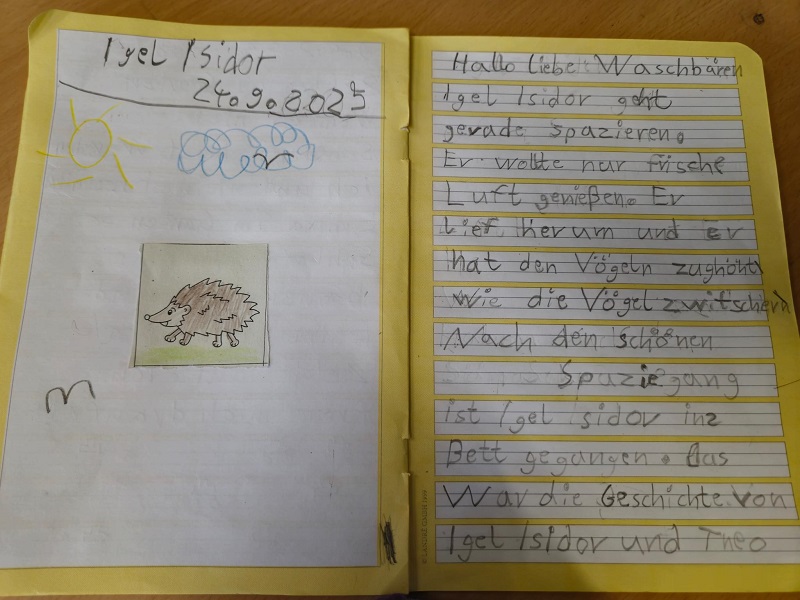 Igel Isidor
24.9.2025
Hallo liebe Waschbären
Igel Isidor geht
gerade spazieren.
Er wollte nur frische
Luft genießen. Er
lief herum und er
hat den Vögeln zughöht
wie die Vögel zwitschern
Nach den schönen
Spaziegang
ist Igel Isidor inz
Bett gegangen. Das
War die Geschichte von
Igel Isidor und Theo